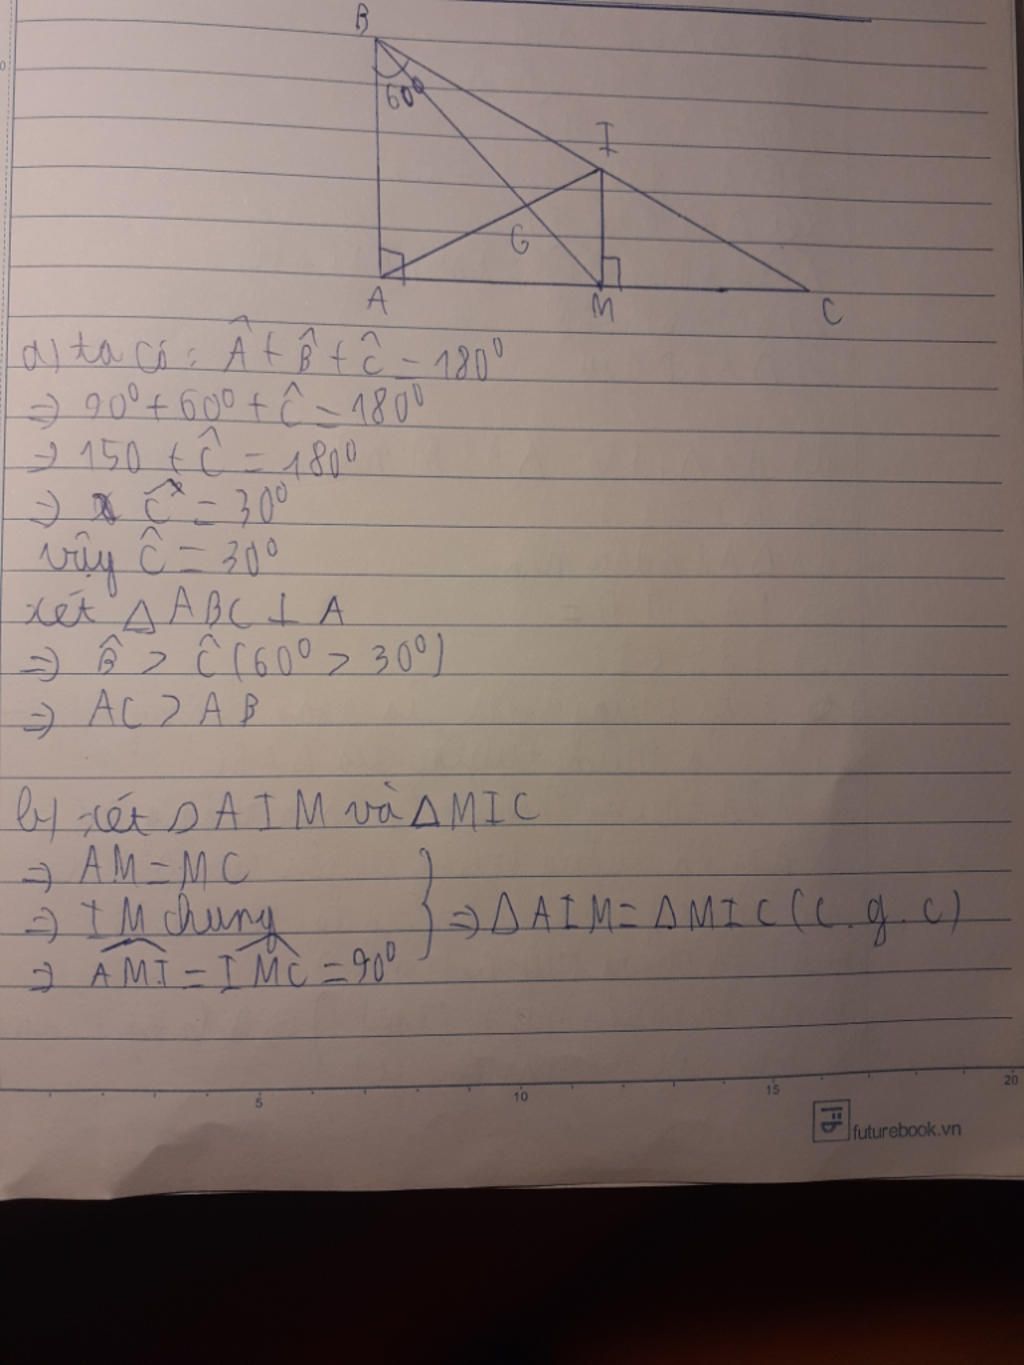 B
60⁰
I
G
A
M
C
a) ta có: Â + B̂ + Ĉ = 180⁰
⇒ 90⁰ + 60⁰ + Ĉ = 180⁰
⇒ 150 + Ĉ = 180⁰
⇒ Ĉ = 30⁰
vậy Ĉ = 30⁰
xét △ ABC ⊥ A
⇒ B̂ > Ĉ (60⁰ > 30⁰)
⇒ AC > AB
b) xét △ AIM và △MIC
⇒ AM = MC
⇒ IM chung
⇒ △AIM = △MIC (c.g.c)
⇒ AMI = IMC = 90⁰
5 10 15 20
futurebook.vn